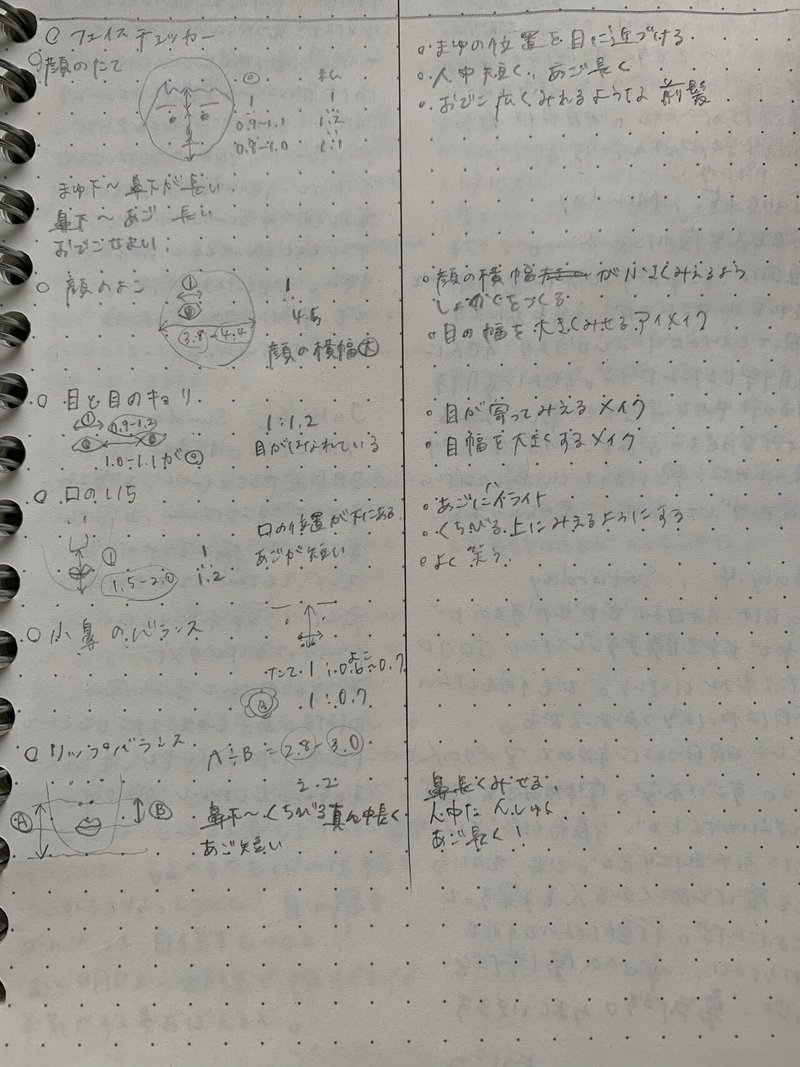 フェイスチェッカー
顔のたて
◎ 私
1 1
0.9~1.1 1.2
0.8~1.0 1.1
まゆ下~鼻下が長い
鼻下~あご 長い
おでこせまい
顔のよこ
① 1
① 4.5
3.8~4.4
顔の横幅大
目と目のキョリ
① 0.9~1.2 1:1.2
1.0~1.1が◎ 目がはなれている
口のいち
口の位置が下にある
あごが短い
① 1
1.5~2.0 1.2
小鼻のバランス
よこ
たて.1:0.6~0.7
1:0.7
リップバランス
A÷B=2.8~3.0
2.2
Ⓐ Ⓑ
鼻下~くちびる真ん中長く
あご短い
まゆの位置を目に近づける
人中短く、あご長く
おでこ広くみれるような前髪
顔の横幅が小さくみえるよう
しょかくをつくる
目の幅を大きくみせるアイメイク
目が寄ってみえるメイク
目幅を大きくするメイク
あごにハイライト
くちびる上にみえるようにする
よく笑う
鼻長くみせる
人中たんしゅく
あご長く!